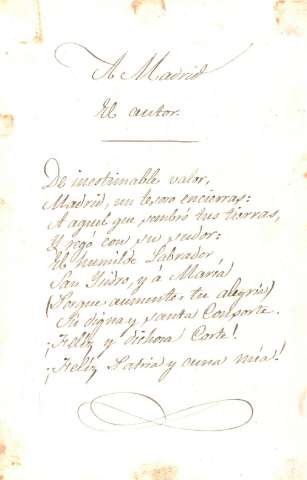 A Madrid
El autor.
De inestimable valor,
Madrid, un tesoro encierras:
A aquel que sembró tus tierras,
Y regó con su sudor:
El humilde Labrador,
San Ysidro, y á María
(Porque aumente tu alegría)
Su digna y santa Consorte.
¡Feliz y dichosa Corte!
¡Feliz Patria y cuna mía!